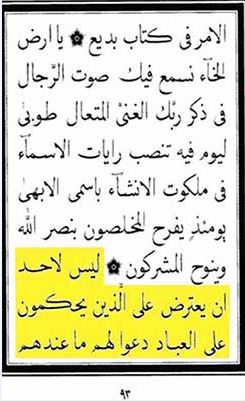 الامر فى كتاب بديع ۞ يا ارض
الخآء نسمع فيك صوت الرّجال
فى ذكر ربّك الغنىّ المتعال طوبى
ليوم فيه تنصب رايات الاسمآء
فى ملكوت الانشآء باسمى الابهى
يومئذٍ يفرح المخلصون بنصر الله
وينوح المشركون ۞ ليس لاحد
ان يعترض على الّذين يحكمون
على العباد دعوا لهم ما عندهم
٩٣